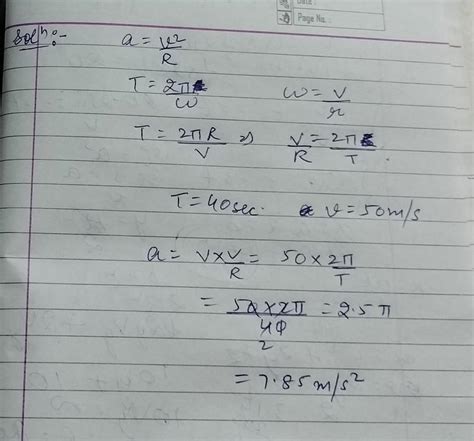 Date :
Page No. :
Solⁿ:-
a = v²/R
T = 2π/ω    ω = v/r
T = 2πR/V ⇒ V/R = 2π/T
T = 40 sec.    v = 50 m/s
a = V×V/R = 50 × 2π/T
= 50×2π/40 = 2.5 π
2
= 7.85 m/s²